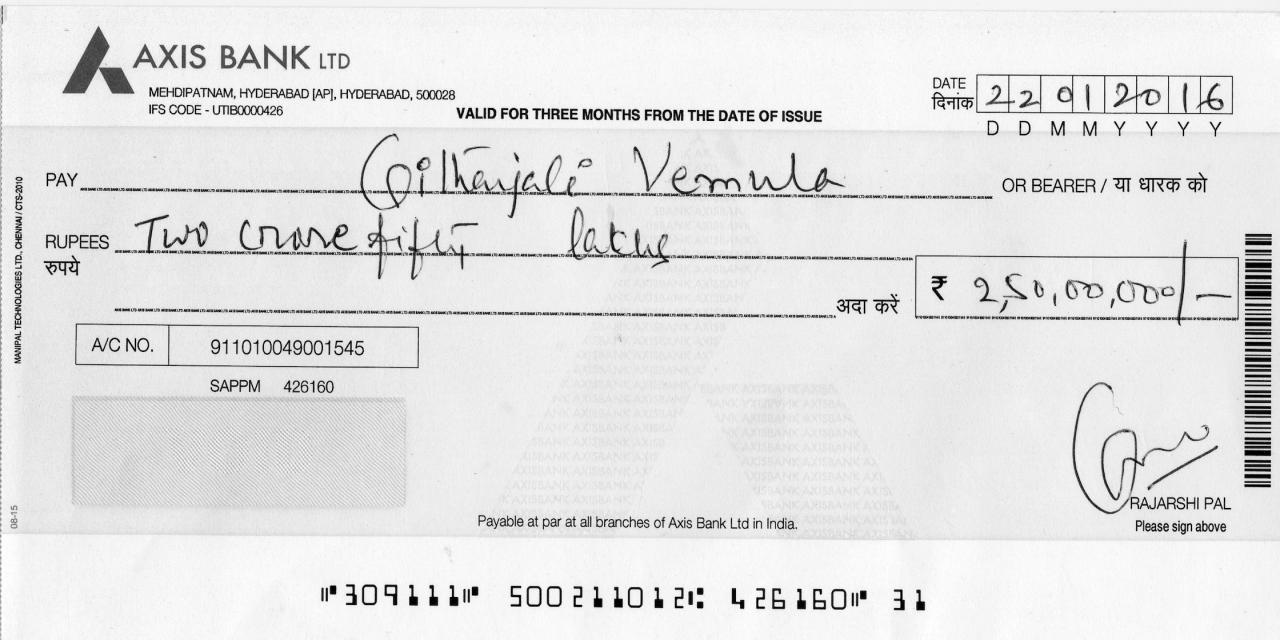 AXIS BANK LTD
MEHDIPATNAM, HYDERABAD [AP], HYDERABAD, 500028
IFS CODE - UTIB0000426
VALID FOR THREE MONTHS FROM THE DATE OF ISSUE
DATE
दिनांक 22012016
D D M M Y Y Y Y
PAY Githanjali Vemula OR BEARER / या धारक को
RUPEES Two crore fifty lakhs
रुपये
अदा करें ₹ 2,50,00,000/-
A/C NO. 911010049001545
SAPPM 426160
RAJARSHI PAL
Please sign above
Payable at par at all branches of Axis Bank Ltd in India.
MANIPAL TECHNOLOGIES LTD., CHENNAI / CTS-2010
08-15
⑈309111⑈ 500211012⑆ 426160⑈ 31